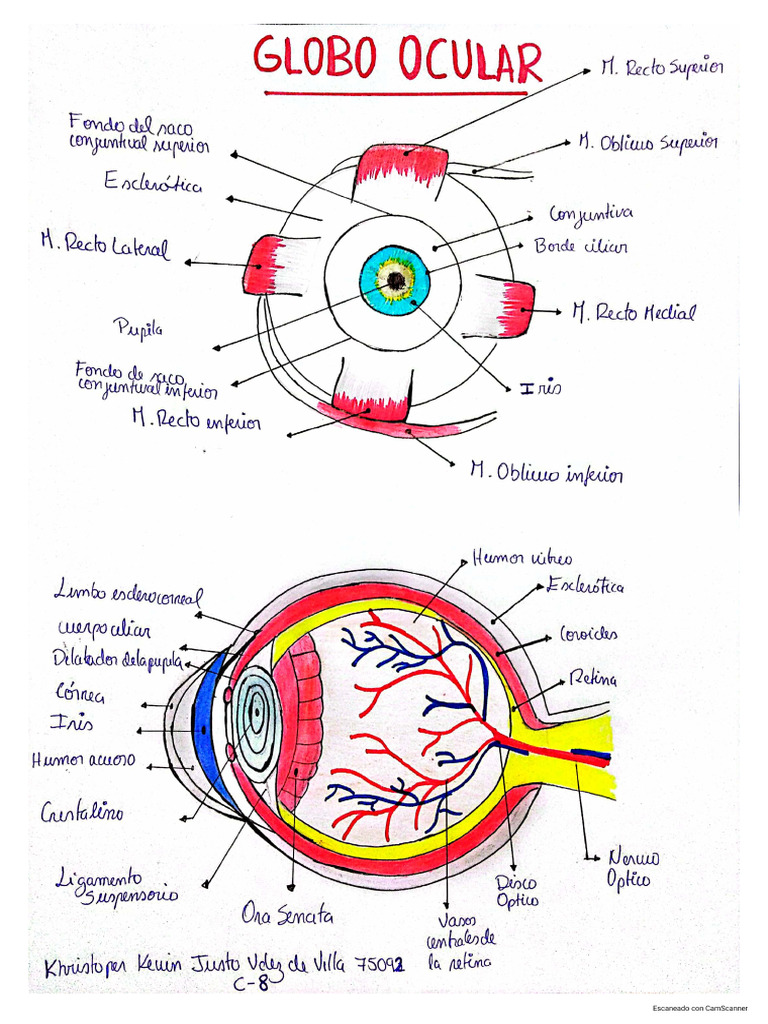 GLOBO OCULAR
M. Recto Superior
Fondo del saco
conjuntival superior
M. Oblicuo Superior
Esclerótica
Conjuntiva
M. Recto Lateral
Borde ciliar
M. Recto Medial
Pupila
Fondo de saco
conjuntival inferior
Iris
M. Recto inferior
M. Oblicuo inferior
Humor vitreo
Limbo esclerocorneal
Esclerótica
cuerpo ciliar
Coroides
Dilatador de la pupila
Retina
Córnea
Iris
Humor acuoso
Cristalino
Nervio
Optico
Ligamento
Suspensorio
Disco
Optico
Ora Serrata
Vasos
centrales de
la retina
Khristoper Kevin Justo Velez de Villa 75092
C-8
Escaneado con CamScanner